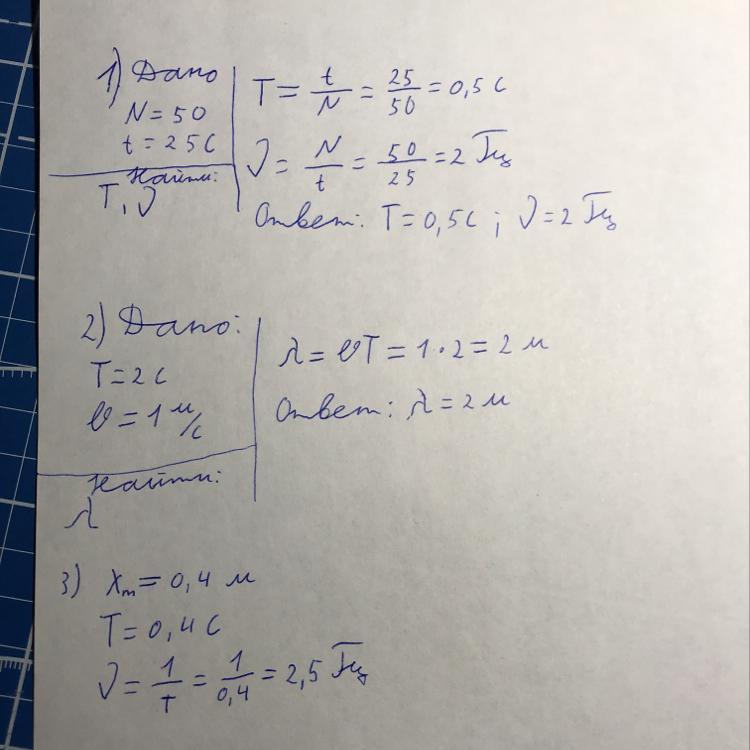 1) Дано
N = 50
t = 25 с
Найти:
T, ν
T = t/N = 25/50 = 0,5 с
ν = N/t = 50/25 = 2 Гц
Ответ: T = 0,5 с ; ν = 2 Гц
2) Дано:
T = 2 с
υ = 1 м/с
Найти:
λ
λ = υT = 1 · 2 = 2 м
Ответ: λ = 2 м
3) xm = 0,4 м
T = 0,4 с
ν = 1/T = 1/0,4 = 2,5 Гц